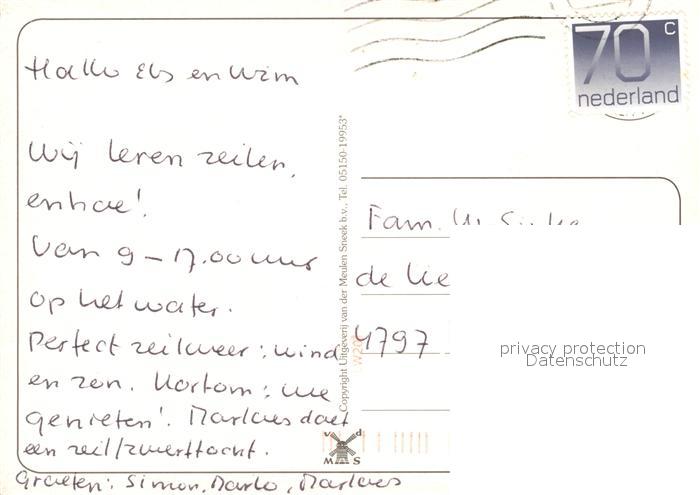 70 c
nederland
Hallo Els en Wim
Wij leren zeilen,
en hoe!
Van 9 - 17.00 uur
op het water.
Perfect zeilweer: wind
en zon. Kortom: we
genieten! Marloes doet
een zeil/zwerftocht.
Groeten: Simon, Marlo, Marloes
Copyright Uitgeverij van der Meulen Sneek b.v., Tel. 05150-19953*
Fam.
de
4797
v d
M S
privacy protection
Datenschutz